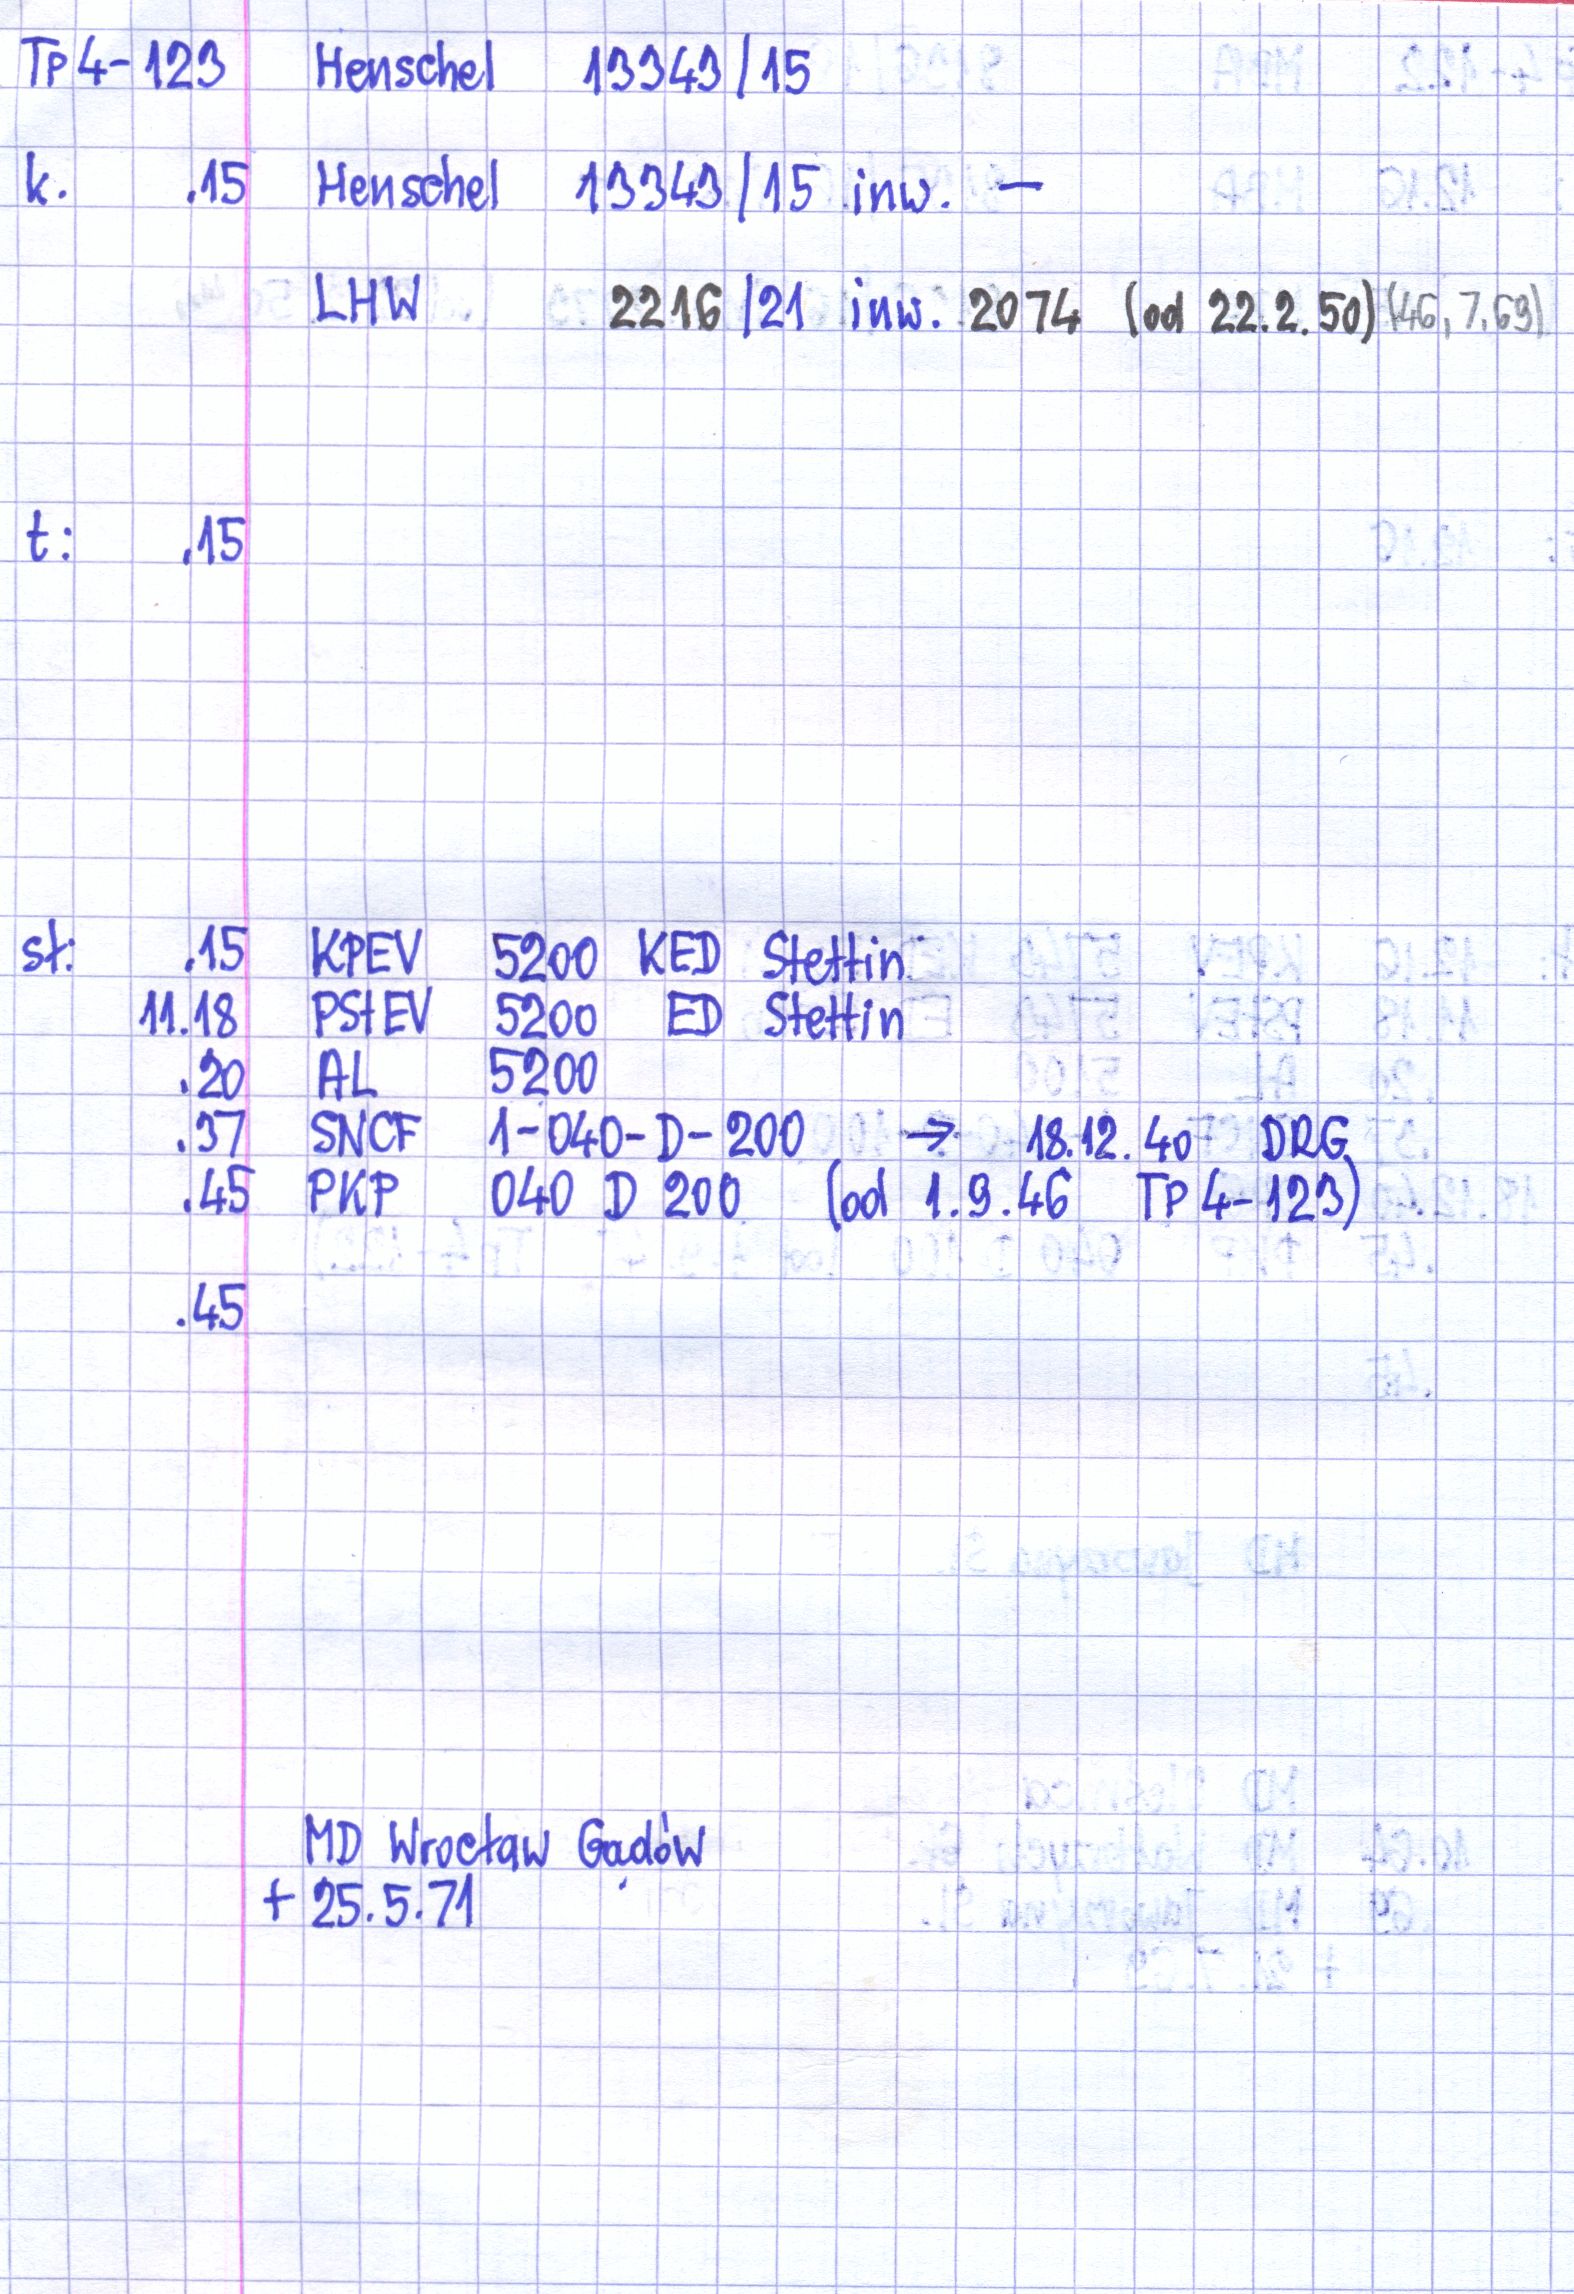 Tp4-123 Henschel 13343/15
k. .15 Henschel 13343/15 inw. —
LHW 2216/21 inw. 2074 (od 22.2.50) (46, 7.69)
t: .15
st: .15 KPEV 5200 KED Stettin
11.18 PStEV 5200 ED Stettin
.20 AL 5200
.37 SNCF 1-040-D-200 → 18.12.40 DRG
.45 PKP 040 D 200 (od 1.9.46 Tp4-123)
.45
MD Wrocław Gądów
+ 25.5.71